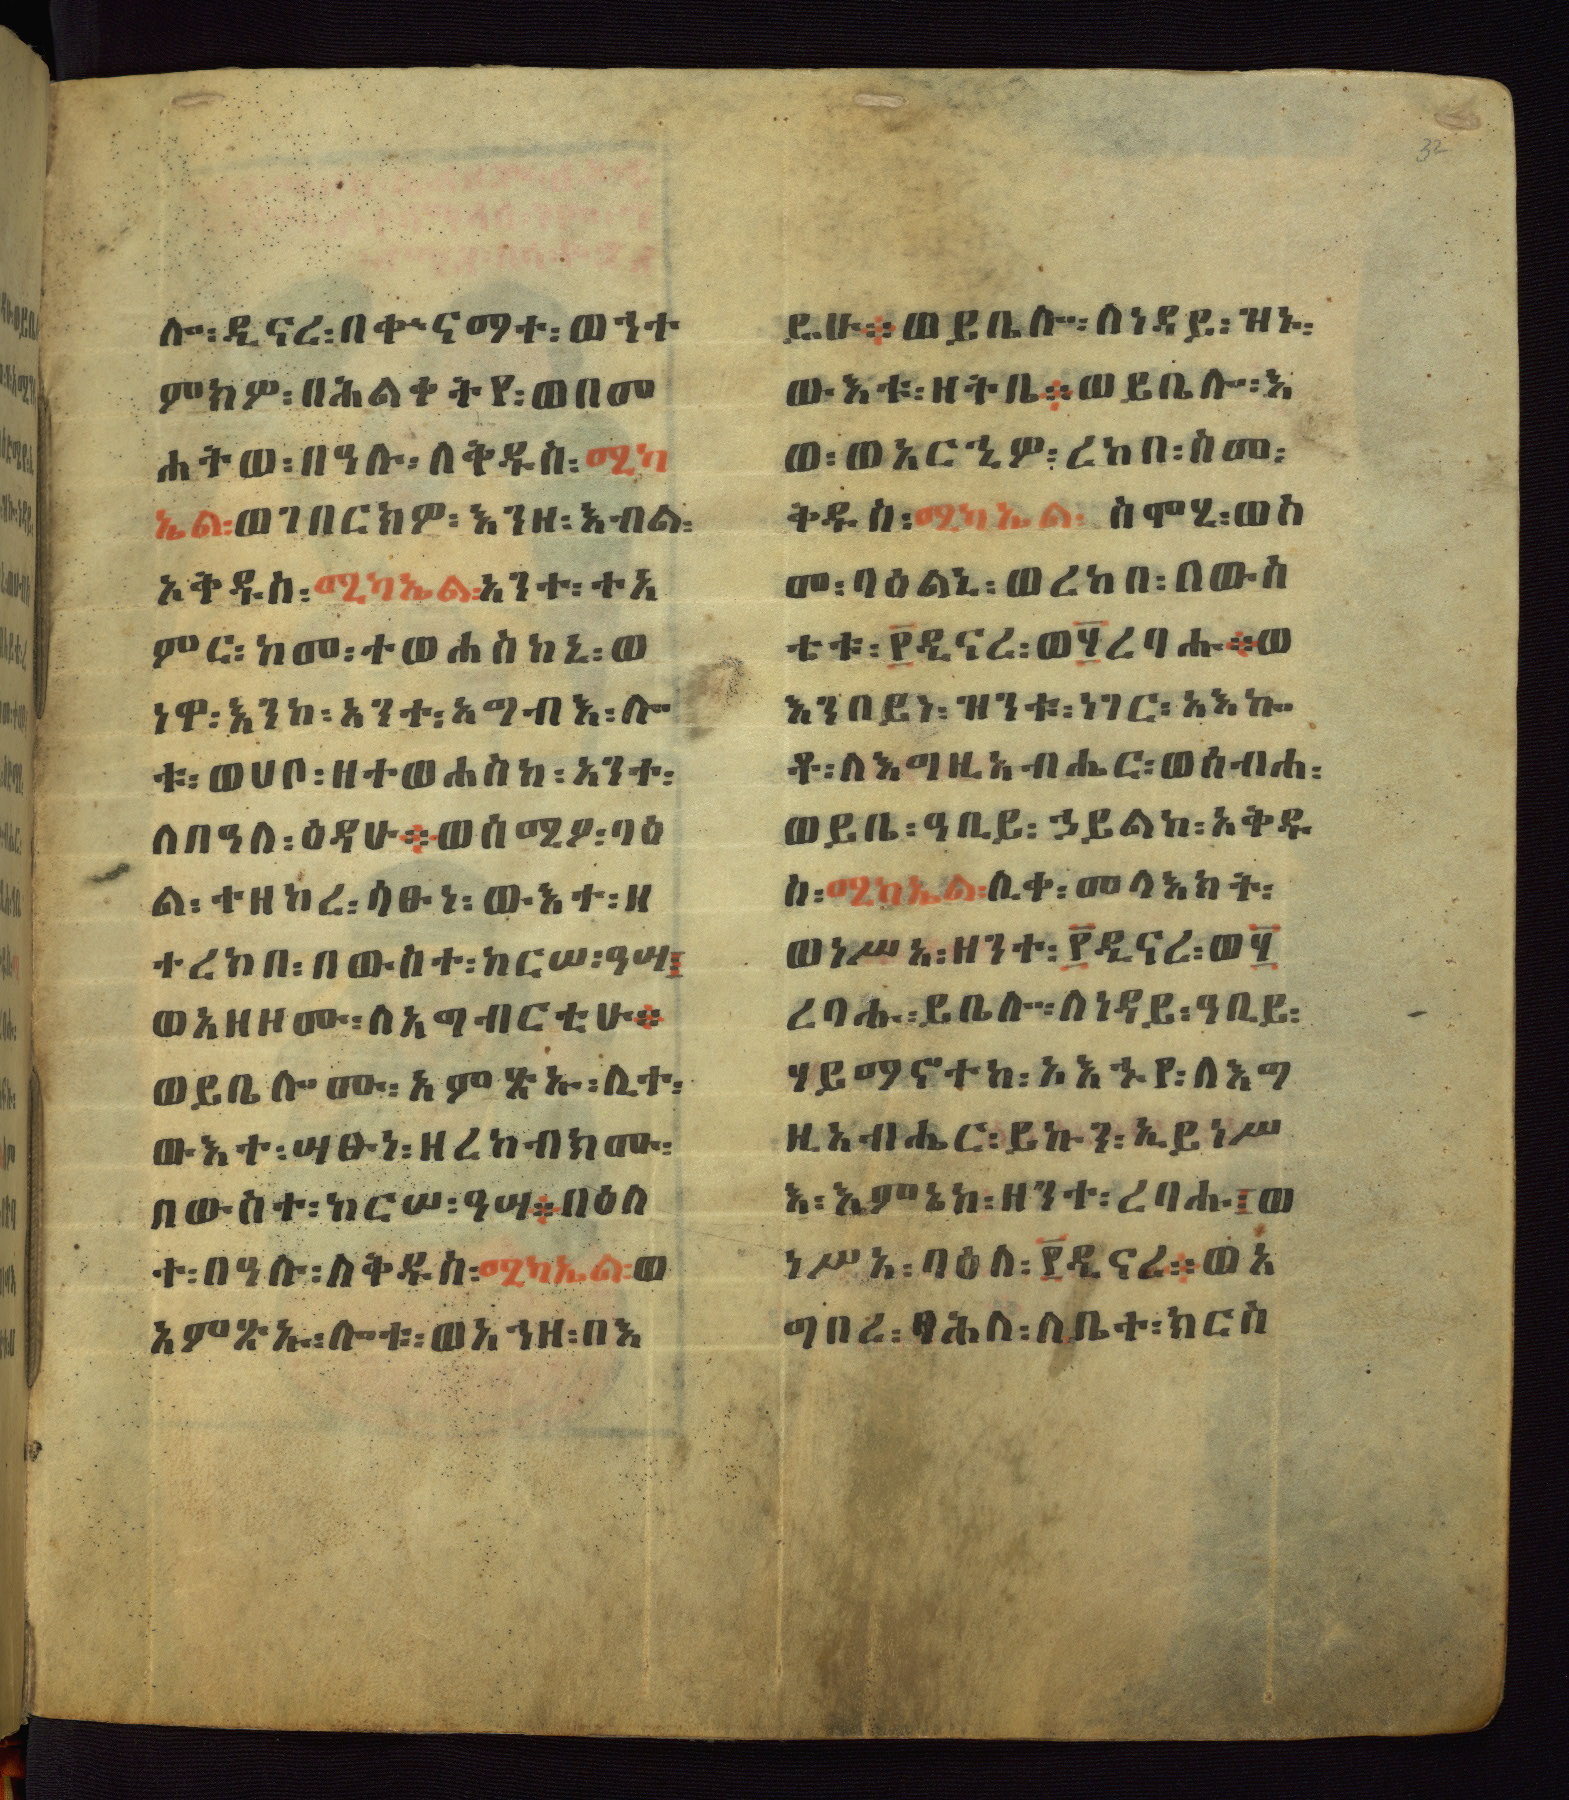 32
ሎ፡ዲናረ፡በቀኍናማተ፡ወኀተ
ምክም፡በሕልቀትየ፡ወበመ
ሐትው፡በዓሉ፡ለቅዱስ፡ሚካ
ኤል፡ወገበርክም፡እንዘ፡እብል፡
አቅዱስ፡ሚካኤል፡አንተ፡ተአ
ምር፡ከመ፡ተወሐስከኒ፡ወ
ነዋ፡እንከ፡አንተ፡አግብእ፡ሎ
ቱ፡ወሀቦ፡ዘተወሐስከ፡አንተ፡
ለበዓለ፡ዕዳሁ፨ወሰሚዖ፡ባዕ
ል፡ተዘከረ፡ሳፁነ፡ውእተ፡ዘ
ተረከበ፡በውስተ፡ከርሠ፡ዓሣ፤
ወአዘዞሙ፡ለአግብርቲሁ፨
ወይቤሎሙ፡አምጽኡ፡ሊተ፡
ውእተ፡ሣፁነ፡ዘረከብክሙ፡
በውስተ፡ከርሠ፡ዓሣ፨በዕለ
ተ፡በዓሉ፡ለቅዱስ፡ሚካኤል፡ወ
አምጽኡ፡ሎቱ፡ወአኀዘ፡በእ
ዴሁ፨ወይቤሎ፡ለነዳይ፡ዝኑ፡
ውእቱ፡ዘትቤ፨ወይቤሎ፡እ
ወ፡ወአርኂዎ፡ረከበ፡ስመ፡
ቅዱስ፡ሚካኤል፡ ስሞሂ፡ወስ
መ፡ባዕልኒ፡ወረከበ፡በውስ
ቴቱ፡፻ዲናረ፡ወ፶ረባሐ፨ወ
እንበይነ፡ዝንቱ፡ነገር፡አእኰ
ቶ፡ለእግዚአብሔር፡ወሰብሐ፡
ወይቤ፡ዓቢይ፡ኃይልከ፡አቅዱ
ስ፡ሚካኤል፡ሊቀ፡መላእክት፡
ወነሥአ፡ዘንተ፡፻ዲናረ፡ወ፶
ረባሐ፡ይቤሎ፡ለነዳይ፡ዓቢይ፡
ሃይማኖተከ፡አእኁየ፡ለእግ
ዚአብሔር፡ይኩን፡ኢይነሥ
እ፡እምኔከ፡ዘንተ፡ረባሐ፤ወ
ነሥአ፡ባዕለ፡፻ዲናረ፨ወአ
ግበረ፡ኳሕለ፡ለቤተ፡ክርስ